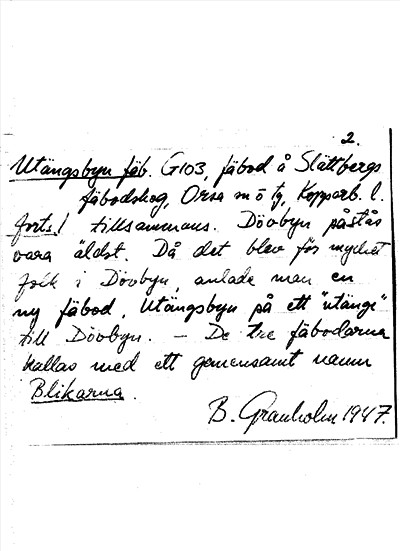 2.
Utängsbyn fäb. G103, fäbod å Slättbergs
fäbodskog, Orsa sn ö tg, Kopparb. l.
forts./ tillsammans. Dövbyn påstås
vara äldst. Då det blev för mycket
folk i Dövbyn, anlade man en
ny fäbod, Utängsbyn på ett "utänge"
till Dövbyn. — De tre fäbodarna
kallas med ett gemensamt namn
Blikarna.
B. Granholm 1947.